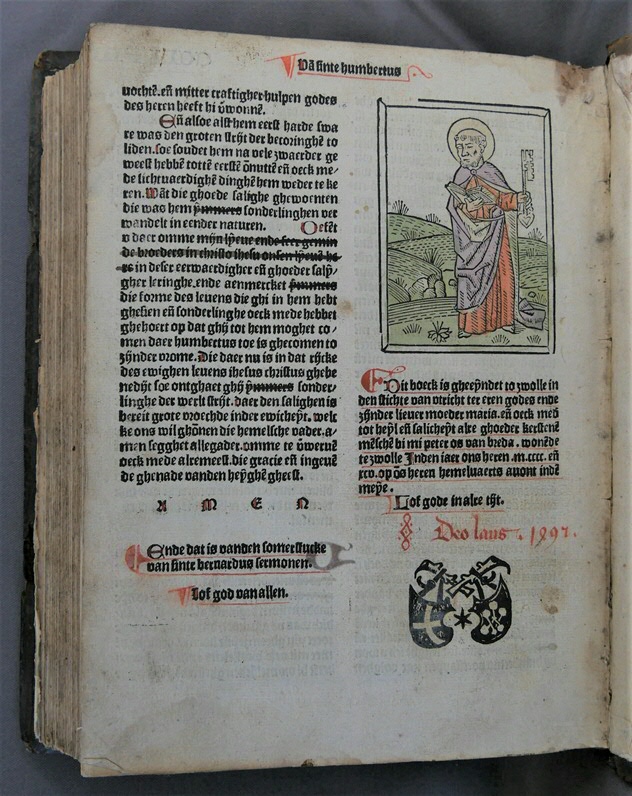 Uā sinte humbertus
vochtē. eñ mitter craftigher hulpen godes
des heren heeft hi ōwonnē.
Eñ alsoe alst hem eerst harde swa
re was den groten strijt der becoringhē to
liden. soe soudet hem na vele zwaerder ge
weest hebbē tottē eerstē ōnuttē eñ oeck me/
de lichtuaerdighē dinghē hem weder te ke
ren. Wāt die ghoede salighe ghewoenten
die was hem ȳmmers sonderlinghen ver
wandelt in eender naturen. Oefēt
v daer omme mijn lyeue ende seer gemin
de broeders in christo ihesu onsen lyeuē he/
re in deser eerwaerdigher eñ ghoeder saly/
gher leringhe. ende aenmercket ȳmmers
die forme des leuens die ghi in hem hebt
ghesien eñ sonderlinghe oeck mede hebbet
ghehoert op dat ghy tot hem moghet co/
men daer humbertus toe is ghecomen to
zijnder wome. Die daer nu is in dat rijcke
des ewighen leuens ihesus christus ghebe
nedijt soe ontghaet ghy ȳmmers sonder/
linghe der werlt strijt. daer den salighen is
bereit grote vroechde inder ewicheyt. welc
ke ons wil ghönen die hemelsche vader. a/
men segghet allegader. omme te ōweruē
oeck mede alremeest. die gracie eñ ingeuē
de ghenade vanden heyghē gheest.
A M E N
Ende dat is vanden somerstucke
van sinte bernardus sermonen.
Lof god van allen.
Dit boeck is gheeyndet to zwolle in
den stichte van vtricht ter eren godes ende
zijnder lieuer moeder maria. eñ oeck med
tot heyl eñ salicheyt alre ghoeder kerstenē
mēschē bi mi peter os van breda. wonēde
te zwolle Inden iaer ons heren .m.cccc. eñ
xcv. op ōs heren hemeluaerts auont indē
meye.
Lof gode in alre tijt.
Deo laus. 1497.